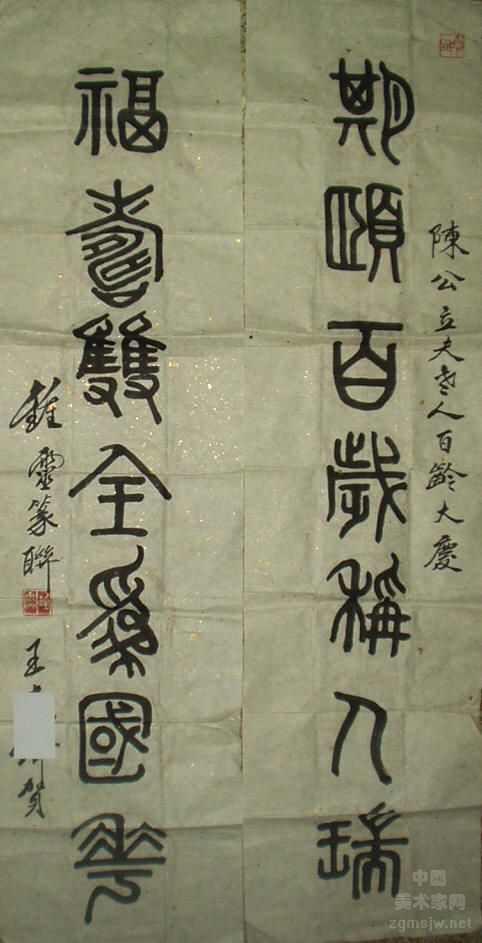 陳公立夫老人百齡大慶
期頤百歲稱人瑞
福壽雙全爲國華
鍾靈篆聯
王 賀
中国
美术家网
zgmsjw.net